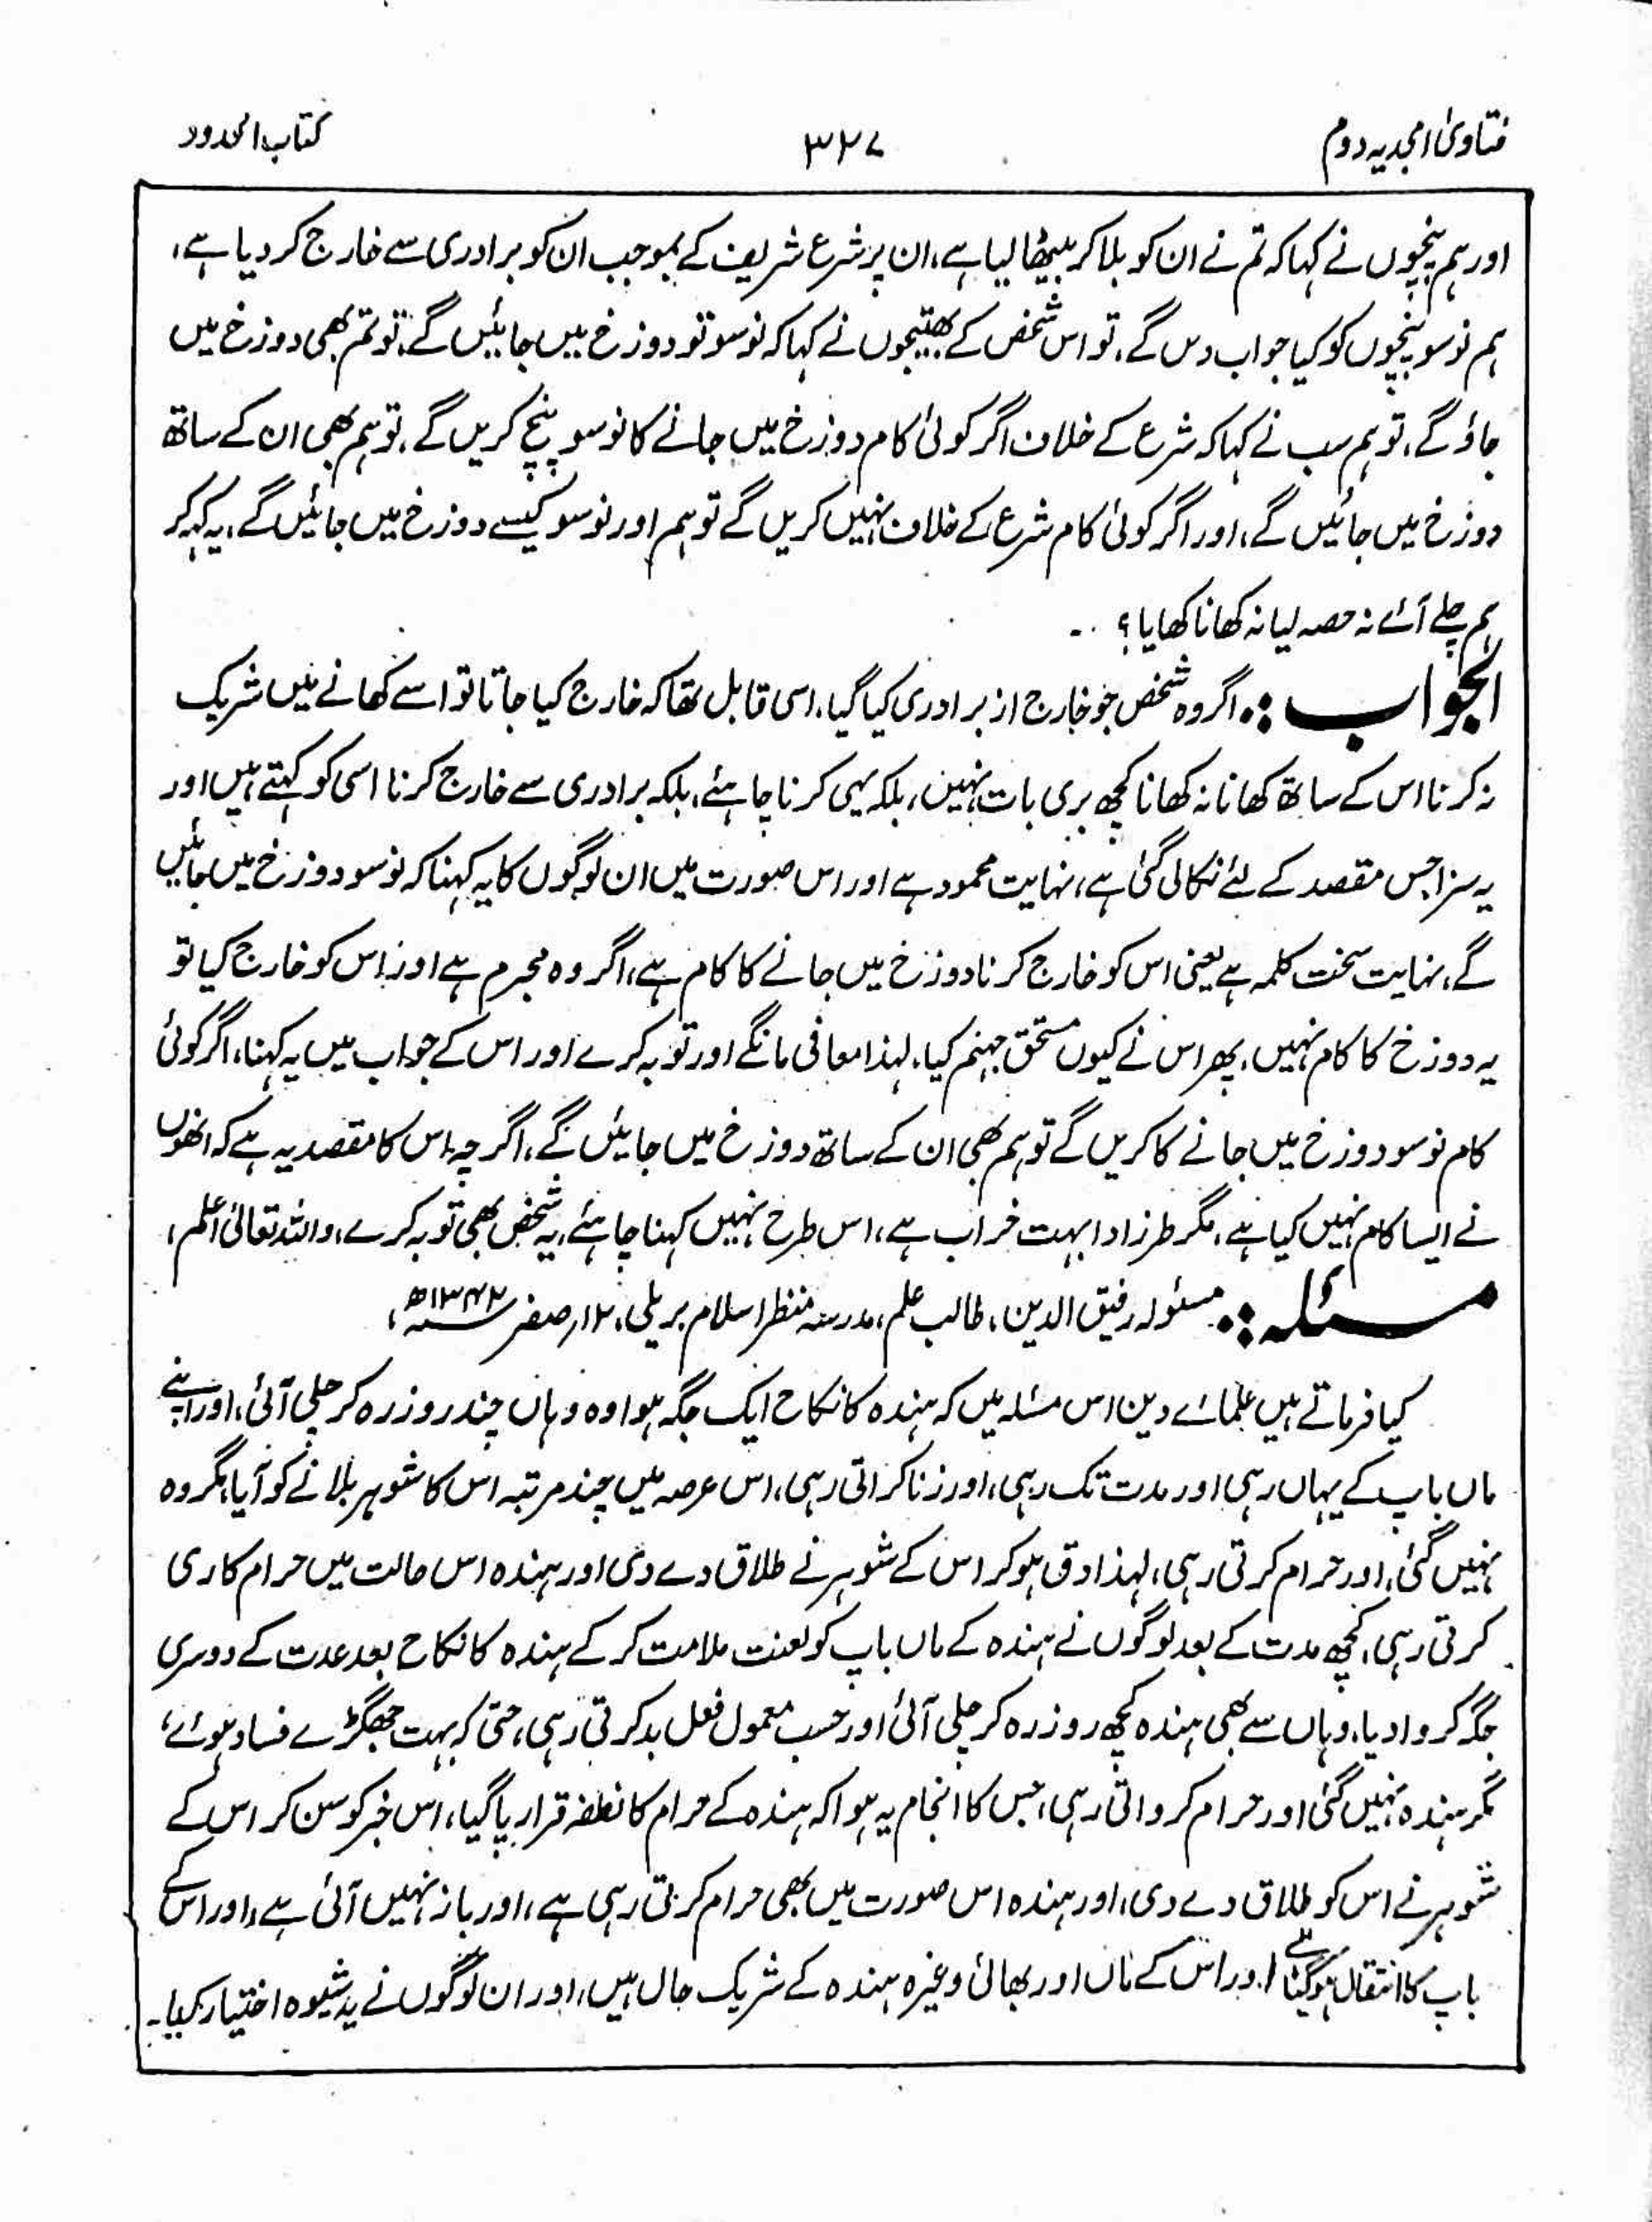 فتاویٰ امجدیہ دوم
۳۲۷
کتاب الحدود
اور ہم پنچوں نے کہا کہ تم نے ان کو بلا کر بیٹھا لیا ہے، ان پر شرع شریف کے بموجب ان کو برادری سے خارج کر دیا ہے،
ہم نو سو پنچوں کو کیا جواب دیں گے، تو اس شخص کے بھتیجوں نے کہا کہ نو سو تو دوزخ میں جائیں گے، تو تم بھی دوزخ میں
جاؤ گے، تو ہم سب نے کہا کہ شرع کے خلاف اگر کوئی کام دوزخ میں جانے کا نو سو پنچ کریں گے، تو ہم بھی ان کے ساتھ
دوزخ میں جائیں گے، اور اگر کوئی کام شرع کے خلاف نہیں کریں گے تو ہم اور نو سو کیسے دوزخ میں جائیں گے، یہ کہہ کر
ہم چلے آئے نہ حصہ لیا نہ کھانا کھایا؟
الجواب :۔ اگر وہ شخص جو خارج از برادری کیا گیا، اسی قابل تھا کہ خارج کیا جاتا تو اسے کھانے میں شریک
نہ کرنا اس کے ساتھ کھانا نہ کھانا کچھ بری بات نہیں، بلکہ یہی کرنا چاہئے، بلکہ برادری سے خارج کرنا اسی کو کہتے ہیں اور
یہ سزا جس مقصد کے لئے نکالی گئی ہے، نہایت محمود ہے اور اس صورت میں ان لوگوں کا یہ کہنا کہ نو سو دوزخ میں جائیں
گے، نہایت سخت کلمہ ہے یعنی اس کو خارج کرنا دوزخ میں جانے کا کام ہے، اگر وہ مجرم ہے اور اس کو خارج کیا تو
یہ دوزخ کا کام نہیں، پھر اس نے کیوں مستحق جہنم کیا، لہذا معافی مانگے اور توبہ کرے اور اس کے جواب میں یہ کہنا، اگر کوئی
کام نو سو دوزخ میں جانے کا کریں گے تو ہم بھی ان کے ساتھ دوزخ میں جائیں گے، اگرچہ اس کا مقصد یہ ہے کہ انھوں
نے ایسا کام نہیں کیا ہے، مگر طرز ادا بہت خراب ہے، اس طرح نہیں کہنا چاہئے، یہ شخص بھی توبہ کرے، واللہ تعالیٰ اعلم،
مسئلہ :۔ مسئولہ رفیق الدین، طالب علم، مدرسہ منظر اسلام بریلی، ۱۲؍ صفر ۱۳۴۲ھ،
کیا فرماتے ہیں علمائے دین اس مسئلہ میں کہ ہندہ کا نکاح ایک جگہ ہوا وہ وہاں چند روز رہ کر چلی آئی، اور اپنے
ماں باپ کے یہاں رہی اور مدت تک رہی، اور زنا کراتی رہی، اس عرصہ میں چند مرتبہ اس کا شوہر بلانے کو آیا، مگر وہ
نہیں گئی، اور حرام کرتی رہی، لہذا دق ہو کر اس کے شوہر نے طلاق دے دی اور ہندہ اس حالت میں حرام کاری
کرتی رہی، کچھ مدت کے بعد لوگوں نے ہندہ کے ماں باپ کو لعنت ملامت کر کے ہندہ کا نکاح بعد عدت کے دوسری
جگہ کروا دیا، وہاں سے بھی ہندہ کچھ روز رہ کر چلی آئی اور حسب معمول فعل بد کرتی رہی، حتی کہ بہت جھگڑے فساد ہوئے،
مگر ہندہ نہیں گئی اور حرام کرواتی رہی، جس کا انجام یہ ہوا کہ ہندہ کے حرام کا نطفہ قرار پا گیا، اس خبر کو سن کر اس کے
شوہر نے اس کو طلاق دے دی، اور ہندہ اس صورت میں بھی حرام کرتی رہی ہے، اور باز نہیں آئی ہے، اور اس کے
باپ کا انتقال ہو گیا ہے، اور اس کے ماں اور بھائی وغیرہ ہندہ کے شریک حال ہیں، اور ان لوگوں نے یہ شیوہ اختیار کیا۔